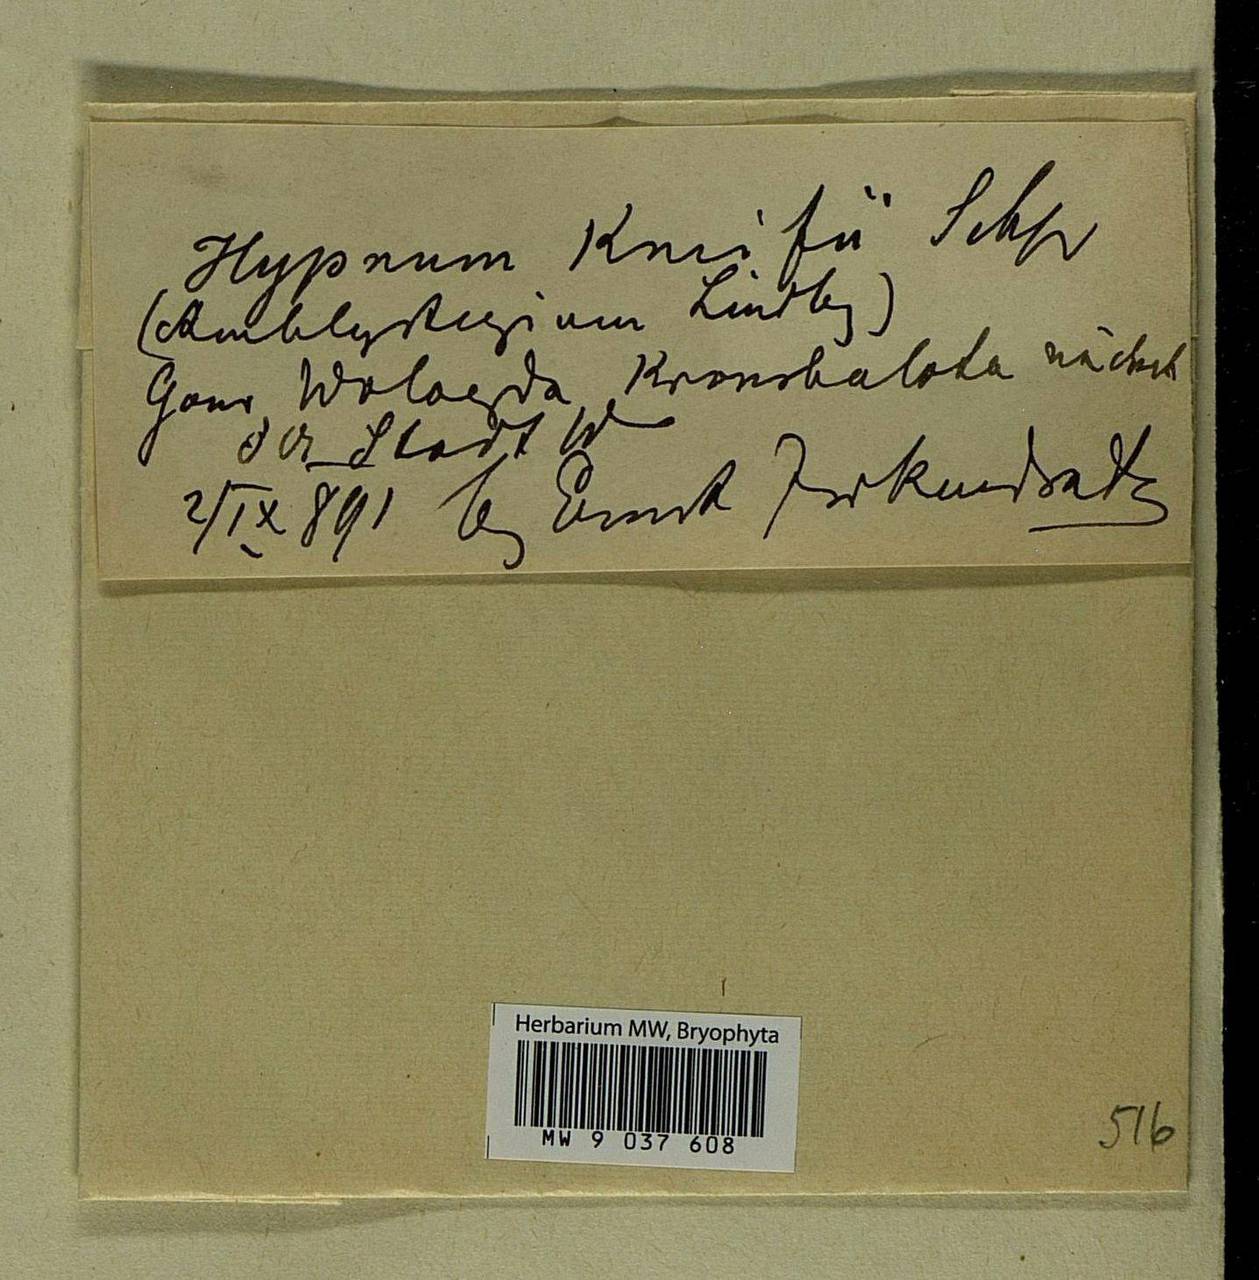 Hypnum Kneiffii Schp
(Amblystegium Lindbg)
Gouv Wologda, Kronsbalota nächst
der Stadt W
2/IX 891 lg Ernst
Herbarium MW, Bryophyta
MW 9 037 608
516